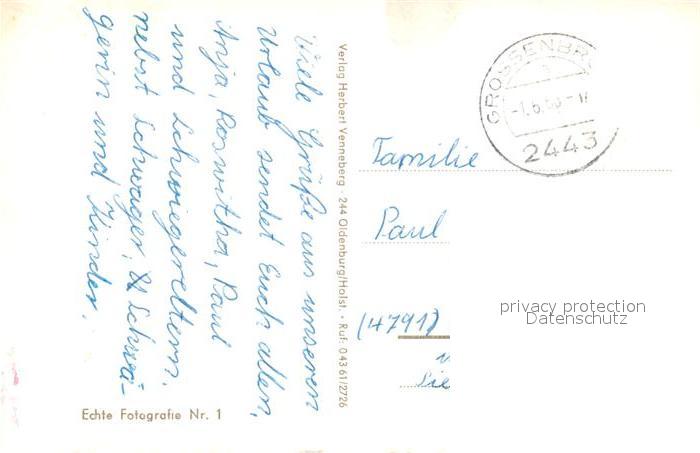 Viele Grüße aus unseren
Urlaub sendet Euch allen,
Anja, Roswitha, Paul
und Schwiegereltern,
nebst Schwager, & Schwä-
gerin und Kinder.
Verlag Herbert Venneberg · 244 Oldenburg/Holst. · Ruf: 04361/2726
Echte Fotografie Nr. 1
GROSSENBR
2443
Familie
Paul
(4791)
privacy protection
Datenschutz